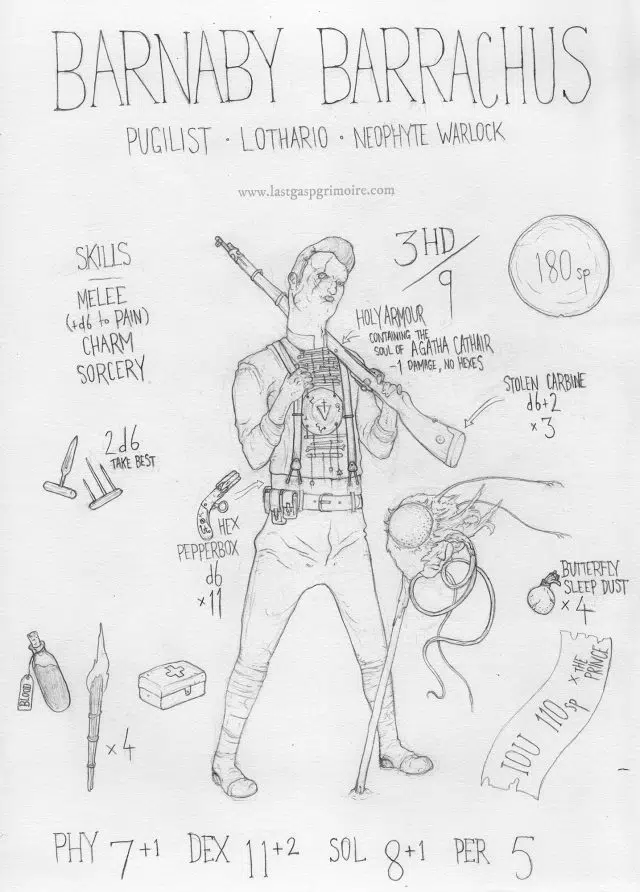 BARNABY BARRACHUS
PUGILIST · LOTHARIO · NEOPHYTE WARLOCK
www.lastgaspgrimoire.com
SKILLS
MELEE
(+d6 to PAIN)
CHARM
SORCERY
3HD/9
180 sp
HOLY ARMOUR
CONTAINING THE
SOUL OF AGATHA CATHAIR
-1 DAMAGE, NO HEXES
STOLEN CARBINE
d6+2
x3
2d6
TAKE BEST
HEX
PEPPERBOX
d6
x11
BUTTERFLY
SLEEP DUST
x4
BLOOD
x4
IOU 110 sp x THE
PRINCE
PHY 7+1 DEX 11+2 SOL 8+1 PER 5